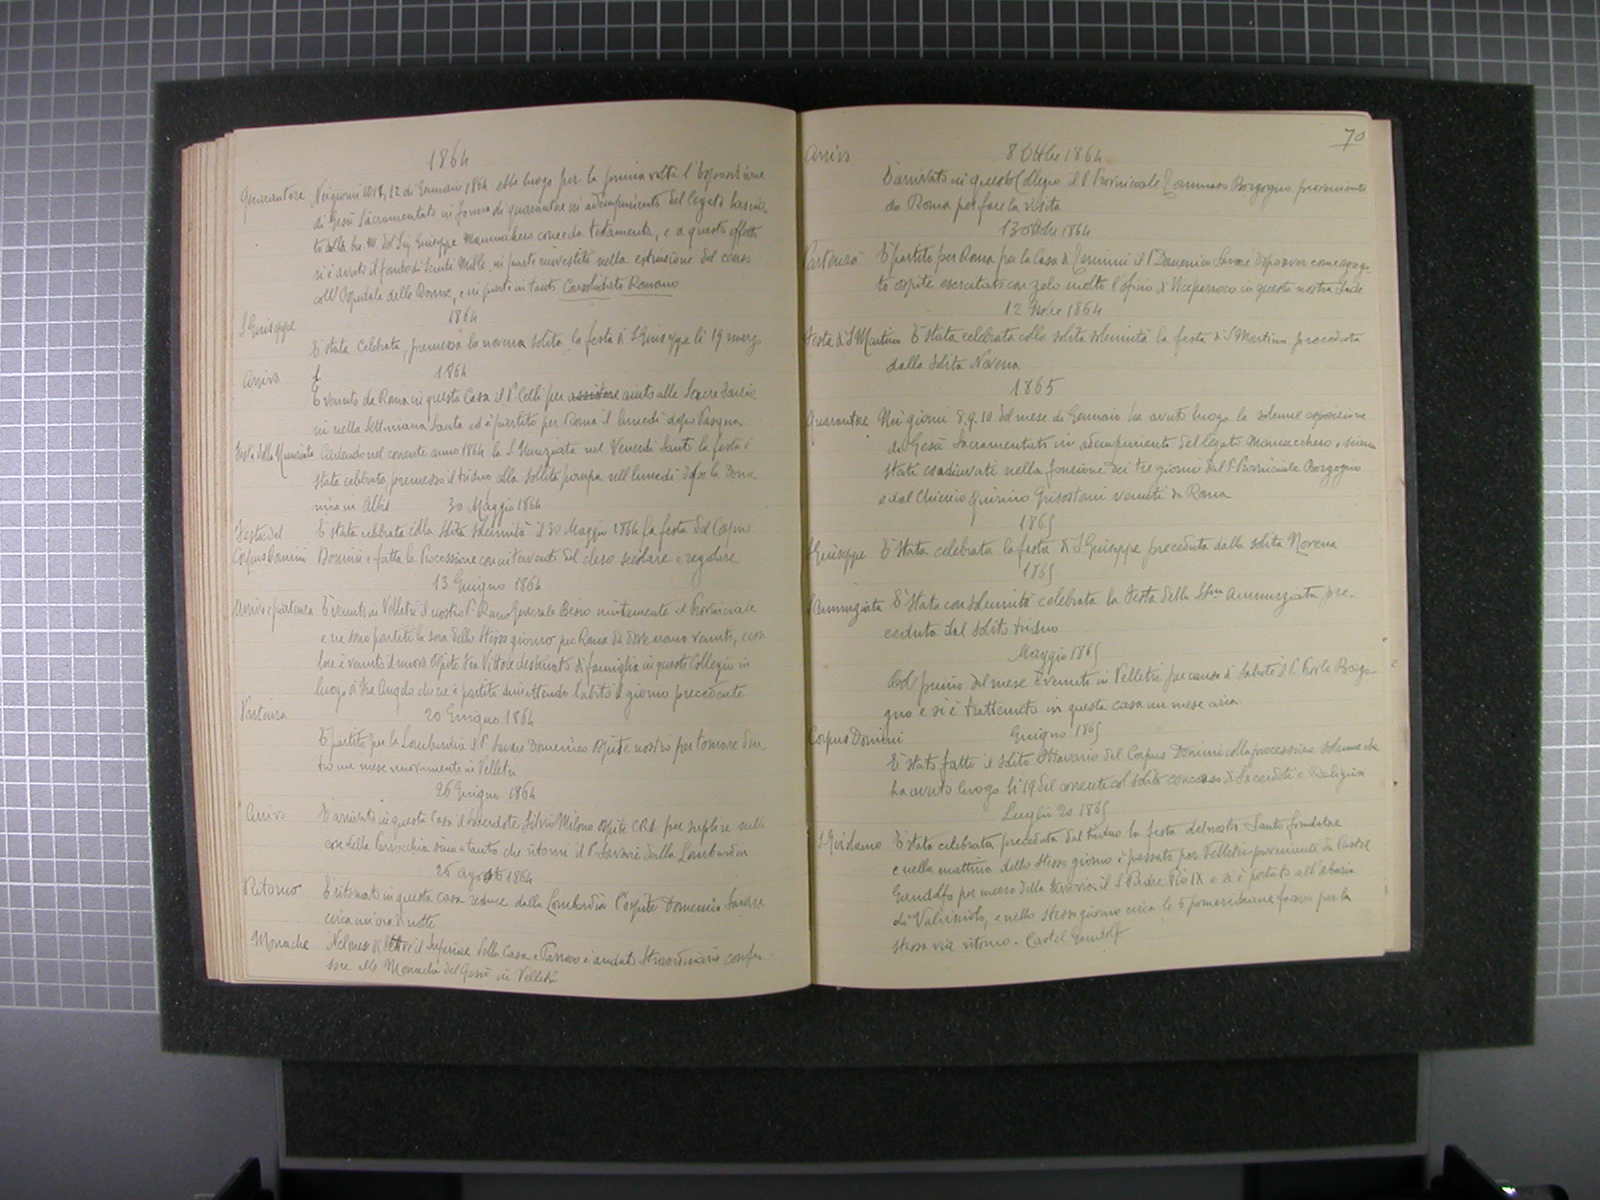 1864
Quarantore Nei giorni 10.11, 12 di Gennaio 1864 ebbe luogo per la prima volta l'Esposizione
di Gesù Sacramentato in forma di quarantore in adempimento del legato lascia-
to dalla bo. M. del Sig Giuseppe Mannucchero con testamento, e a questo effetto
si è avuto il fondo di Scudi Mille, in parte investiti nella estinzione del censo
coll'Ospedale delle Donne, e in parte in tanto Consolidato Romano
1864
S Giuseppe
È stata celebrata, premessa la novena solita, la festa di S Giuseppe li 19 marzo
1864
Arrivo
È venuto da Roma in questa Casa il P. Colli per assistere aiuto alle Sacre Funzio
ni nella Settimana Santa ed è partito per Roma il lunedì dopo Pasqua
Festa della Nunziata Cadendo nel corrente anno 1864 la S. Nunziata nel Venerdì Santo la festa è
stata celebrata, premesso il triduo colla solita pompa nell lunedì dopo la Dome
nica in Albis 30 Maggio 1864
Festa del È stata celebrata colla solita solennità il 30 Maggio 1864 la festa del Corpus
Corpus Domini Domini e fatta la Processione con intervento del clero secolare e regolare
13 Giugno 1864
Arrivo e partenza È venuto in Velletri il nostro P. Rmo Generale Besio unitamente al Provinciale
e ne sono partiti la sera dello stesso giorno per Roma da dove erano venuti, e con
loro è venuto il nuovo ospite Fra Vittore destinato di famiglia in questo Collegio in
luogo di Fra Angelo che ne è partito dimettendo l'abito il giorno precedente
Partenza 20 Giugno 1864
È partito per la Lombardia il P. Savarè Domenico ospite nostro per tornare den
tro un mese nuovamente in Velletri
26 Giugno 1864
Arrivo È arrivato in questa Casa il sacerdote Silvio Milano ospite C.R.S. per supplire nelle
cose della Parrocchia sino a tanto che ritorni il P. Savarè dalla Lombardia
26 Agosto 1864
Ritorno È ritornato in questa casa reduce dalla Lombardia l'ospite Domenico Savarè
circa un'ora di notte
Monache Nel mese di il Superiore della Casa e Parroco è andato straordinario confes-
sore alle Monache del Gesù in Velletri
70
Arrivo 8 Ottbre 1864
È arrivato in questo Collegio il P. Provinciale Tommaso Borgogno proveniente
da Roma per fare la visita
13 Ottbre 1864
Partenza È partito per Roma per la Casa di Termini il P. Domenico Savarè dopo aver come aggrega-
to ospite esercitato con zelo molto l'ufficio di Viceparroco in questa nostra Sede
12 Nbre 1864
Festa di S Martino È stata celebrata colla solita solennità la festa di S Martino preceduta
dalla solita Novena
1865
Quarantore Nei giorni 8.9.10 del mese di Gennaio ha avuto luogo la solenne esposizione
di Gesù Sacramentato in adempimento del legato Mannucchero e siamo
stati coadiuvati nella funzione dei tre giorni dal P. Provinciale Borgogno
e dal Chierico Quirino Grisostomi venuti da Roma
1865
S Giuseppe È stata celebrata la festa di S Giuseppe preceduta dalla solita Novena
1865
S Annunziata È stata con solennità celebrata la Festa della SSma Annunziata pre-
ceduta dal solito triduo
Maggio 1865
Col primo del mese è venuto in Velletri per causa di salute il P. Borgo-
gno e si è trattenuto in questa casa un mese circa.
Corpus Domini Giugno 1865
È stato fatto il solito Ottavario del Corpus Domini colla processione solenne che
ha avuto luogo li 19 del corrente col solito concorso di Sacerdoti e Religiosi
Luglio 20 1865
S. Girolamo È stata celebrata preceduta dal triduo la festa del nostro Santo fondatore
e nella mattina dello stesso giorno è passato per Velletri proveniente da Castel
Gandolfo per mezzo della ferrovia il S Padre Pio IX e si è portato all'abazia
di Valvisciolo, e nello stesso giorno circa le 5 pomeridiane faceva per la
stessa via ritorno a Castel Gandolfo